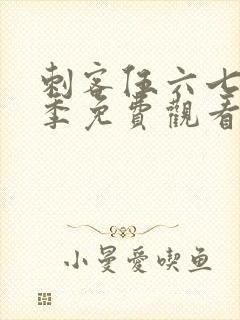 刺客伍六七
季免費觀看
小曼愛喫鱼